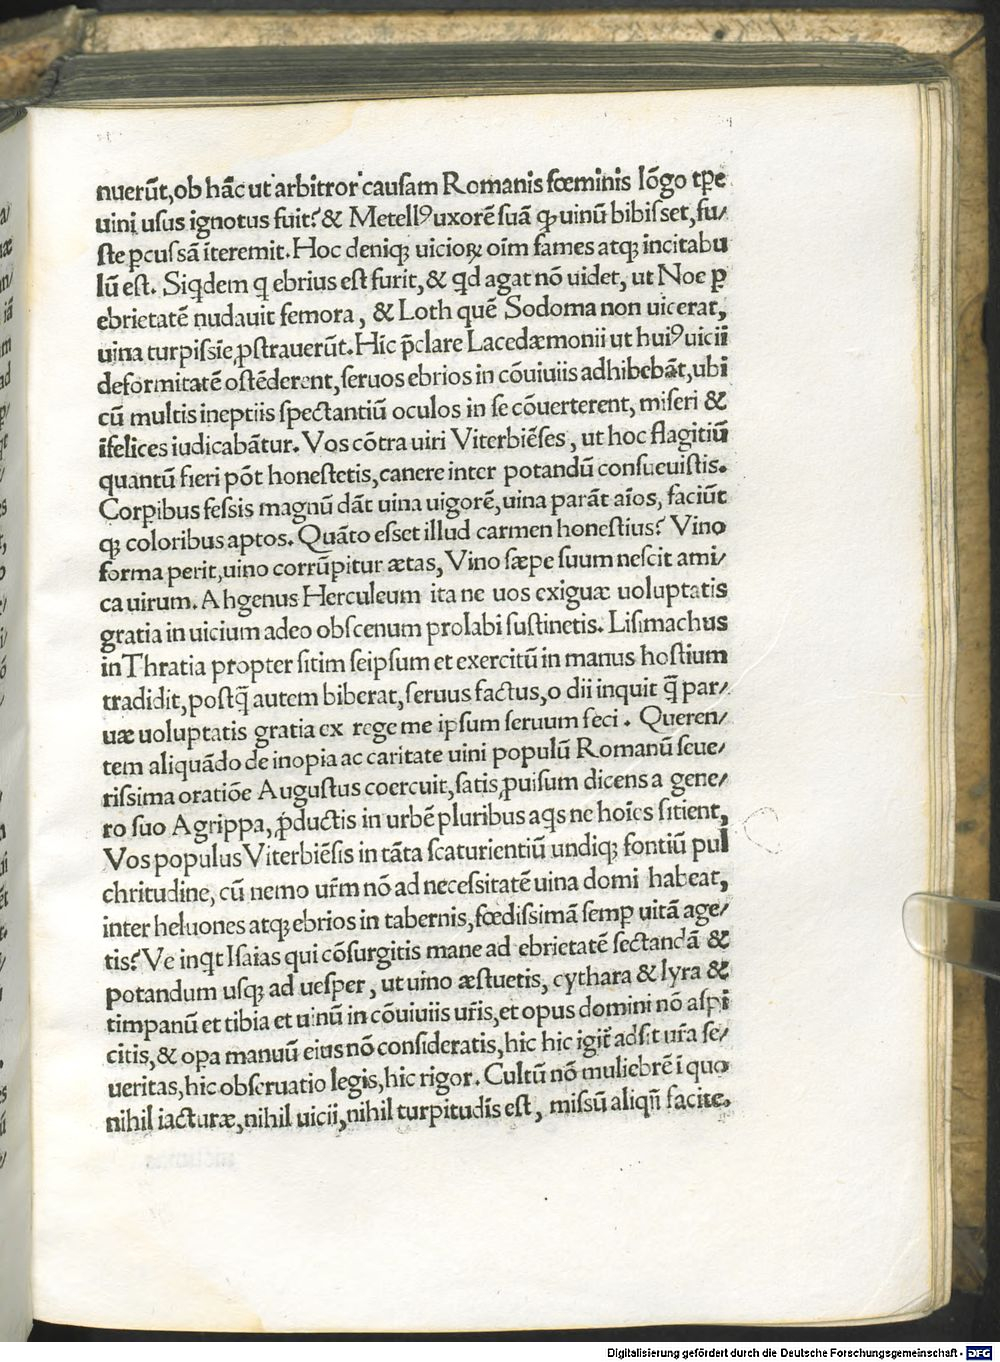 nuerūt, ob hāc ut arbitror causam Romanis fœminis lōgo tp̄e
uini usus ignotus fuit? & Metellꝰ uxorē suā ꝙ uinū bibisset, fu⸗
ste ꝑcussā īteremit. Hoc deniqꝫ uicioꝝ oīm fames atqꝫ incitabu
lū est. Siqdem q ebrius est furit, & qd agat nō uidet, ut Noe ꝑ
ebrietatē nudauit femora, & Loth quē Sodoma non uicerat,
uina turpissie ꝓstrauerūt. Hic p̄clare Lacedæmonii ut huiꝰ uicii
deformitatē ostēderent, seruos ebrios in cōuiuiis adhibebāt, ubi
cū multis ineptiis spectantiū oculos in se cōuerterent, miseri &
īfelices iudicabātur. Vos cōtra uiri Viterbiēses, ut hoc flagitiū
quantū fieri pōt honestetis, canere inter potandū consueuistis.
Corpibus fessis magnū dāt uina uigorē, uina parāt aīos, faciūt
qꝫ coloribus aptos. Quāto esset illud carmen honestius? Vino
forma perit, uino corrūpitur ætas, Vino sæpe suum nescit ami⸗
ca uirum. Ah genus Herculeum ita ne uos exiguæ uoluptatis
gratia in uicium adeo obscenum prolabi sustinetis. Lisimachus
in Thratia propter sitim seipsum et exercitū in manus hostium
tradidit, postq̄ autem biberat, seruus factus, o dii inquit q̄ par⸗
uæ uoluptatis gratia ex rege me ipsum seruum feci. Queren⸗
tem aliquādo de inopia ac caritate uini populū Romanū seue⸗
rissima oratiōe Augustus coercuit, satis ꝓuisum dicens a gene⸗
ro suo Agrippa, p̄ductis in urbē pluribus aqs ne hoīes sitient,
Vos populus Viterbiēsis in tāta scaturientiū undiqꝫ fontiū pul
chritudine, cū nemo ur̄m nō ad necessitatē uina domi habeat,
inter heluones atqꝫ ebrios in tabernis, fœdissimā semp uitā age⸗
tis? Ve inqt Isaias qui cōsurgitis mane ad ebrietatē sectandā &
potandum usqꝫ ad uesper, ut uino æstuetis, cythara & lyra &
timpanū et tibia et uinū in cōuiuiis ur̄is, et opus domini nō aspi
citis, & opa manuū eius nō consideratis, hic hic igit̄ adsit ur̄a se⸗
ueritas, hic obseruatio legis, hic rigor. Cultū nō muliebrē ī quo
nihil iacturæ, nihil uicii, nihil turpitudis est, missū aliqn̄ facite.
Digitalisierung gefördert durch die Deutsche Forschungsgemeinschaft - DFG